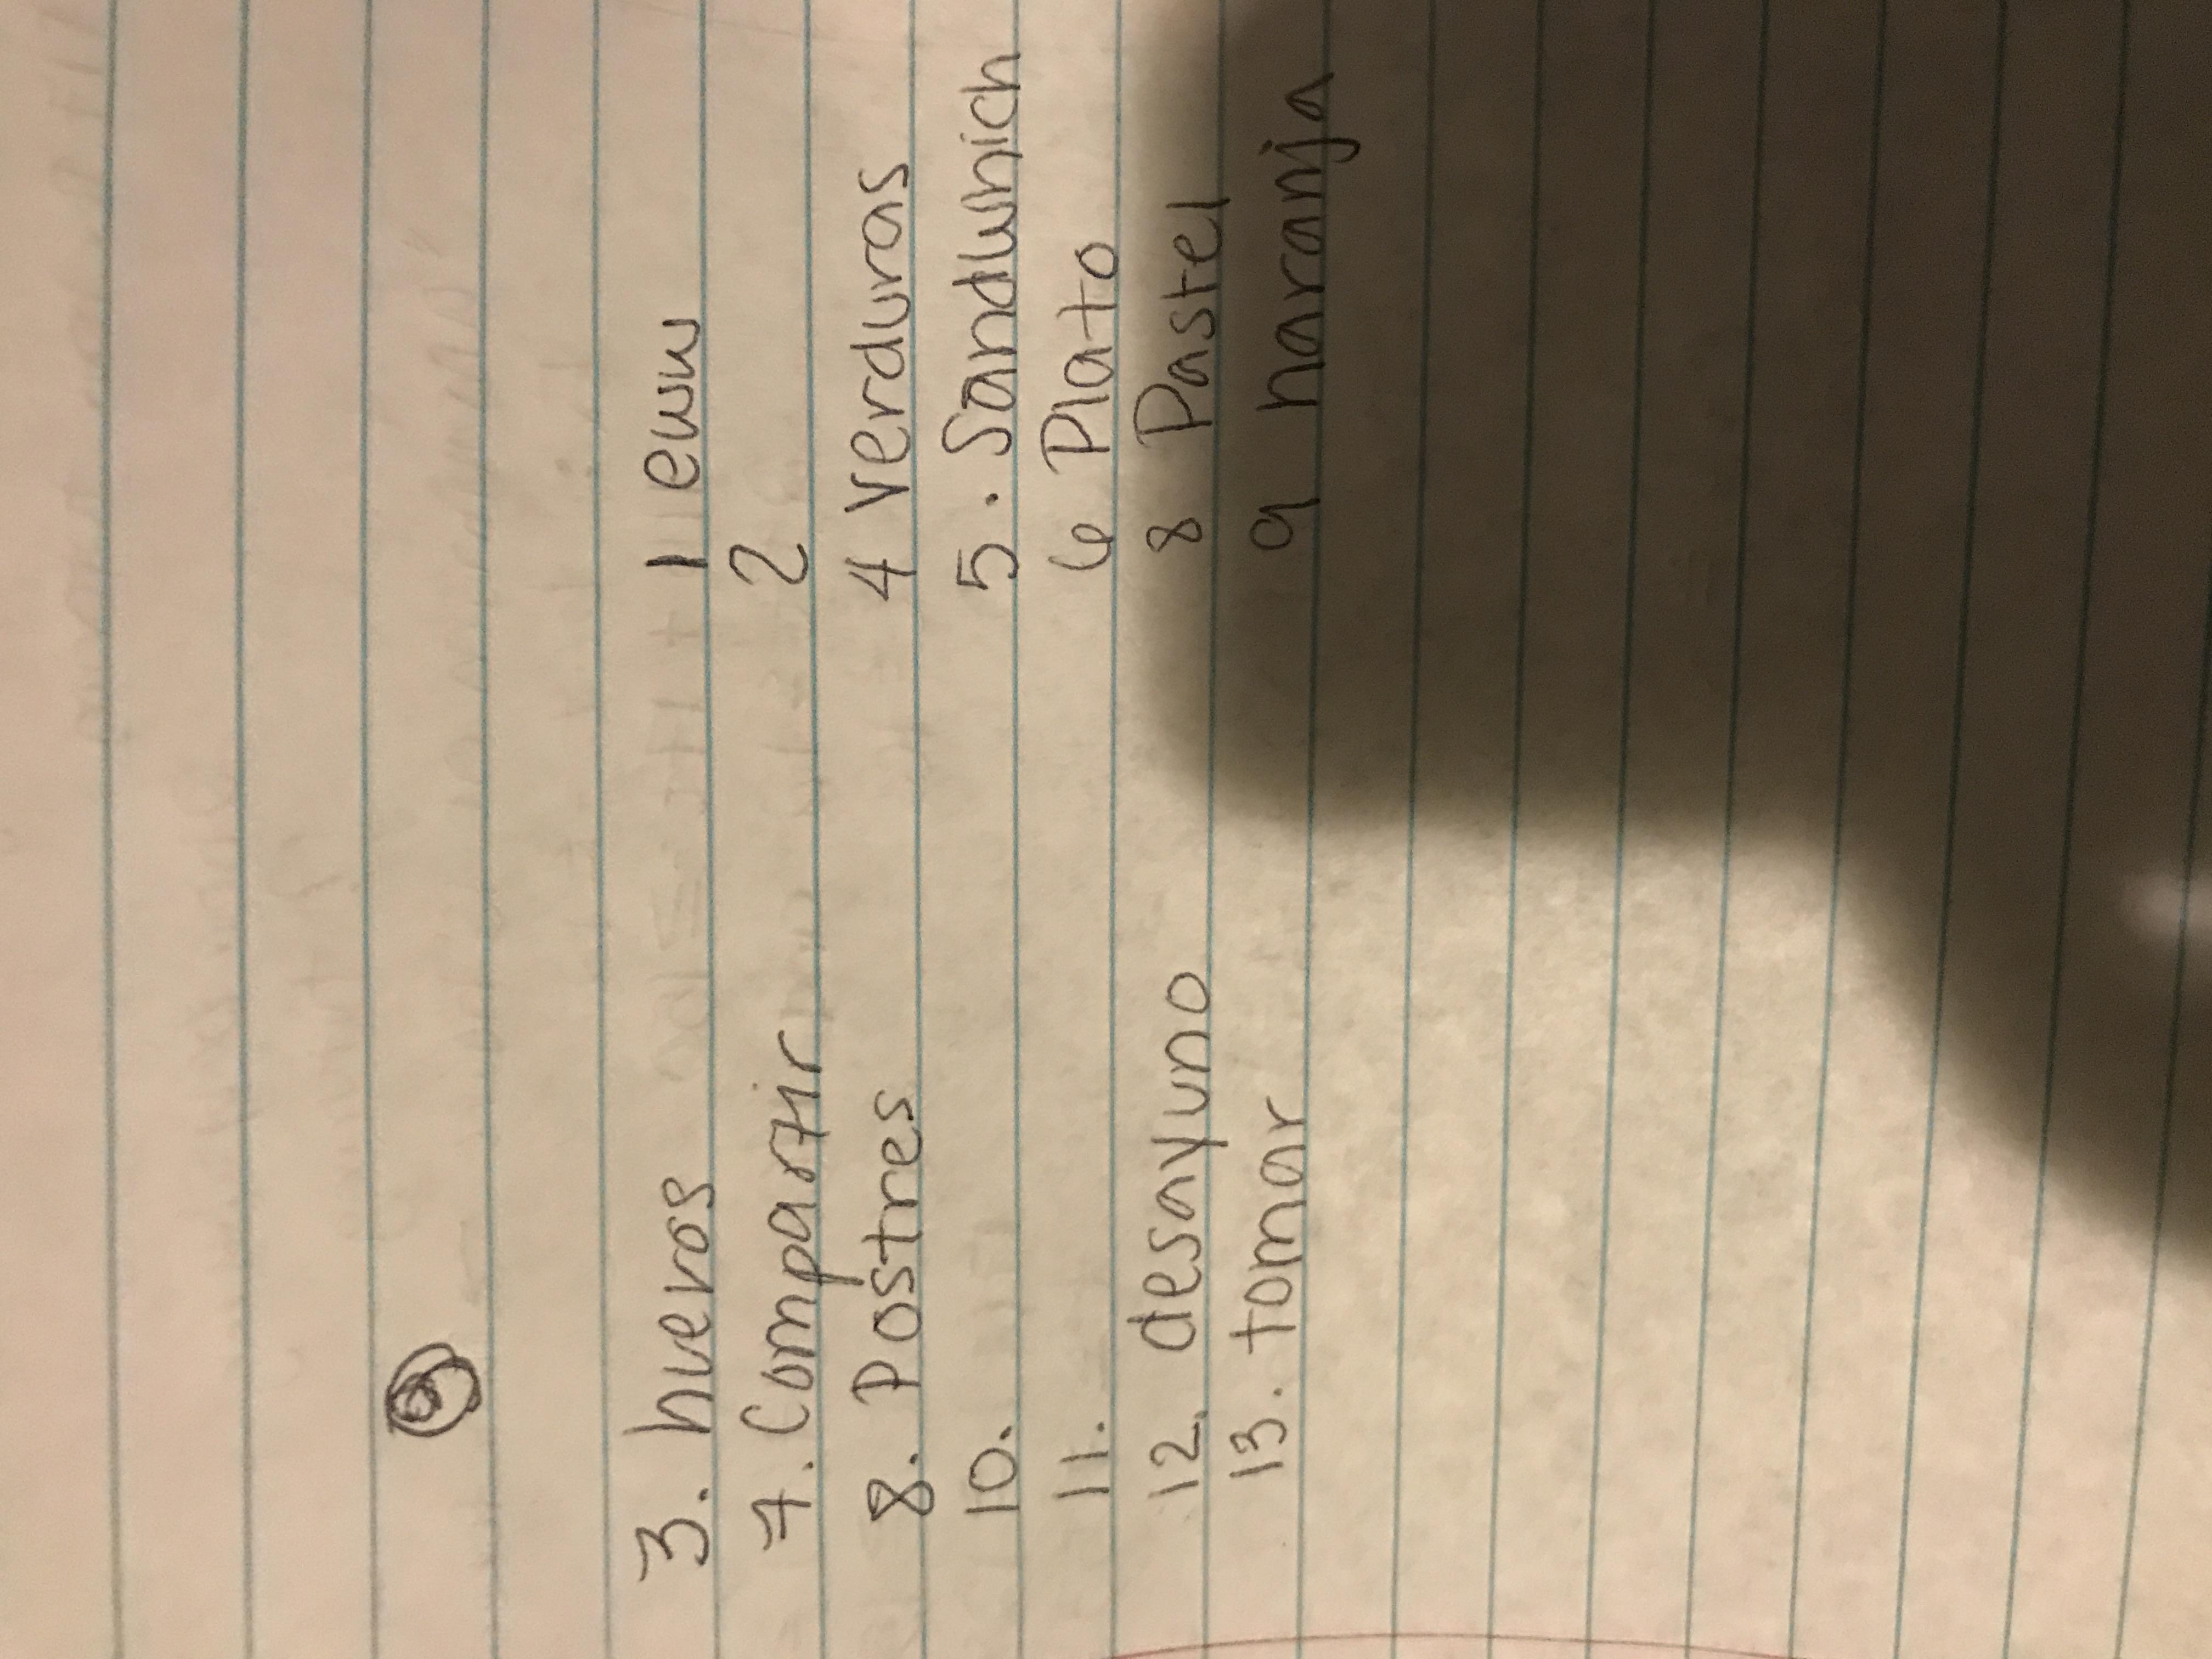 3. hueros
7. Compartir
8. Postres
10.
11.
12. desayuno
13. tomar
1 eww
2
4 verduras
5. Sandwnich
6 Plato
8 Pastel
9 naranja